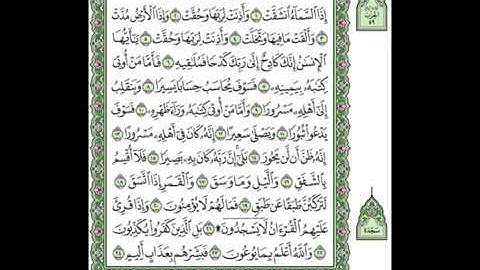 إِذَا ٱلسَّمَآءُ ٱنشَقَّتْ ١ وَأَذِنَتْ لِرَبِّهَا وَحُقَّتْ ٢ وَإِذَا ٱلْأَرْضُ مُدَّتْ
٣ وَأَلْقَتْ مَا فِيهَا وَتَخَلَّتْ ٤ وَأَذِنَتْ لِرَبِّهَا وَحُقَّتْ ٥ يَٰٓأَيُّهَا
ٱلْإِنسَٰنُ إِنَّكَ كَادِحٌ إِلَىٰ رَبِّكَ كَدْحًا فَمُلَٰقِيهِ ٦ فَأَمَّا مَنْ أُوتِيَ
كِتَٰبَهُۥ بِيَمِينِهِۦ ٧ فَسَوْفَ يُحَاسَبُ حِسَابًا يَسِيرًا ٨ وَيَنقَلِبُ
إِلَىٰٓ أَهْلِهِۦ مَسْرُورًا ٩ وَأَمَّا مَنْ أُوتِيَ كِتَٰبَهُۥ وَرَآءَ ظَهْرِهِۦ ١٠ فَسَوْفَ
يَدْعُوا۟ ثُبُورًا ١١ وَيَصْلَىٰ سَعِيرًا ١٢ إِنَّهُۥ كَانَ فِيٓ أَهْلِهِۦ مَسْرُورًا ١٣
إِنَّهُۥ ظَنَّ أَن لَّن يَحُورَ ١٤ بَلَىٰٓ إِنَّ رَبَّهُۥ كَانَ بِهِۦ بَصِيرًا ١٥ فَلَآ أُقْسِمُ
بِٱلشَّفَقِ ١٦ وَٱلَّيْلِ وَمَا وَسَقَ ١٧ وَٱلْقَمَرِ إِذَا ٱتَّسَقَ ١٨
لَتَرْكَبُنَّ طَبَقًا عَن طَبَقٍ ١٩ فَمَا لَهُمْ لَا يُؤْمِنُونَ ٢٠ وَإِذَا قُرِئَ
عَلَيْهِمُ ٱلْقُرْءَانُ لَا يَسْجُدُونَ ۩ ٢١ بَلِ ٱلَّذِينَ كَفَرُوا۟ يُكَذِّبُونَ
٢٢ وَٱللَّهُ أَعْلَمُ بِمَا يُوعُونَ ٢٣ فَبَشِّرْهُم بِعَذَابٍ أَلِيمٍ ٢٤
الحزب
٥٩
سجدة